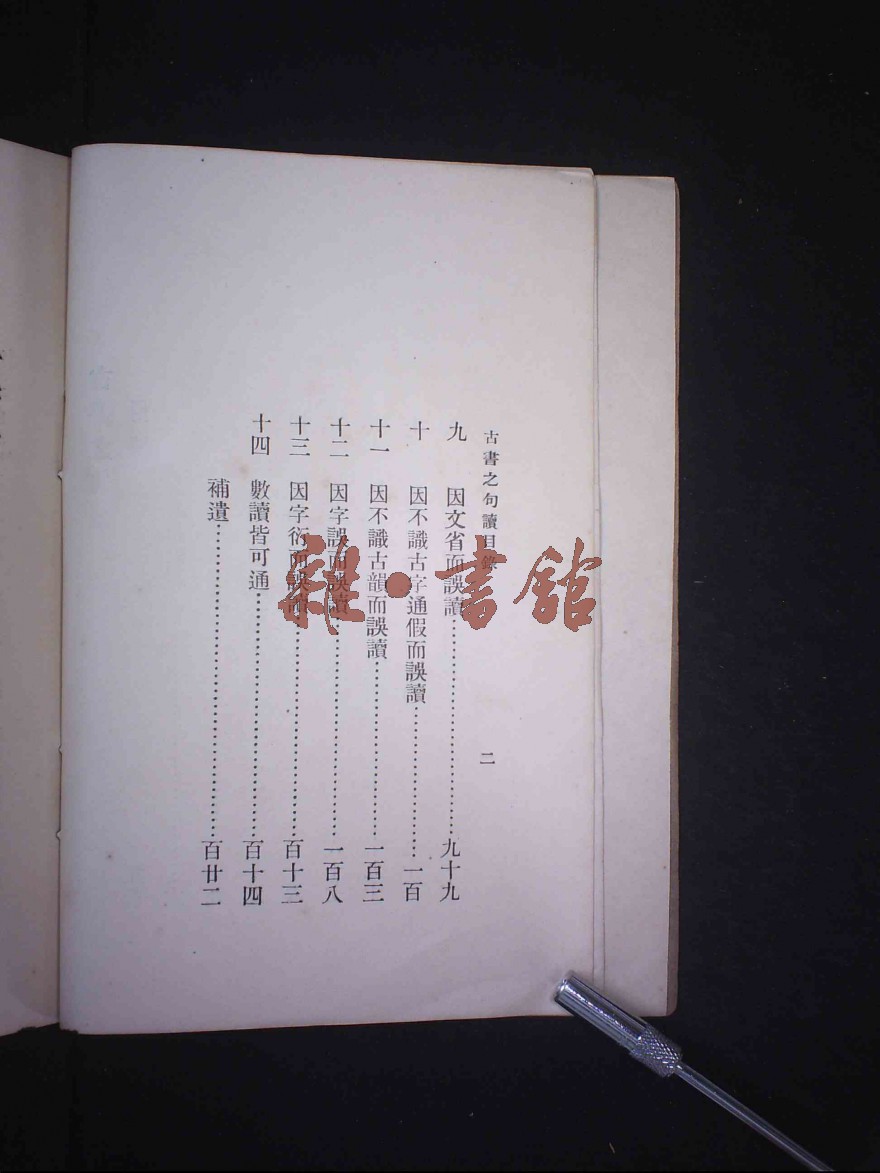 古書之句讀目錄 二
九 因文省而誤讀……………………九十九
十 因不識古字通假而誤讀……………一百
十一 因不識古韻而誤讀………………一百三
十二 因字誤而誤讀……………………一百八
十三 因字衍而誤讀……………………百十三
十四 數讀皆可通………………………百十四
補遺……………………………………百廿二
雜·書館